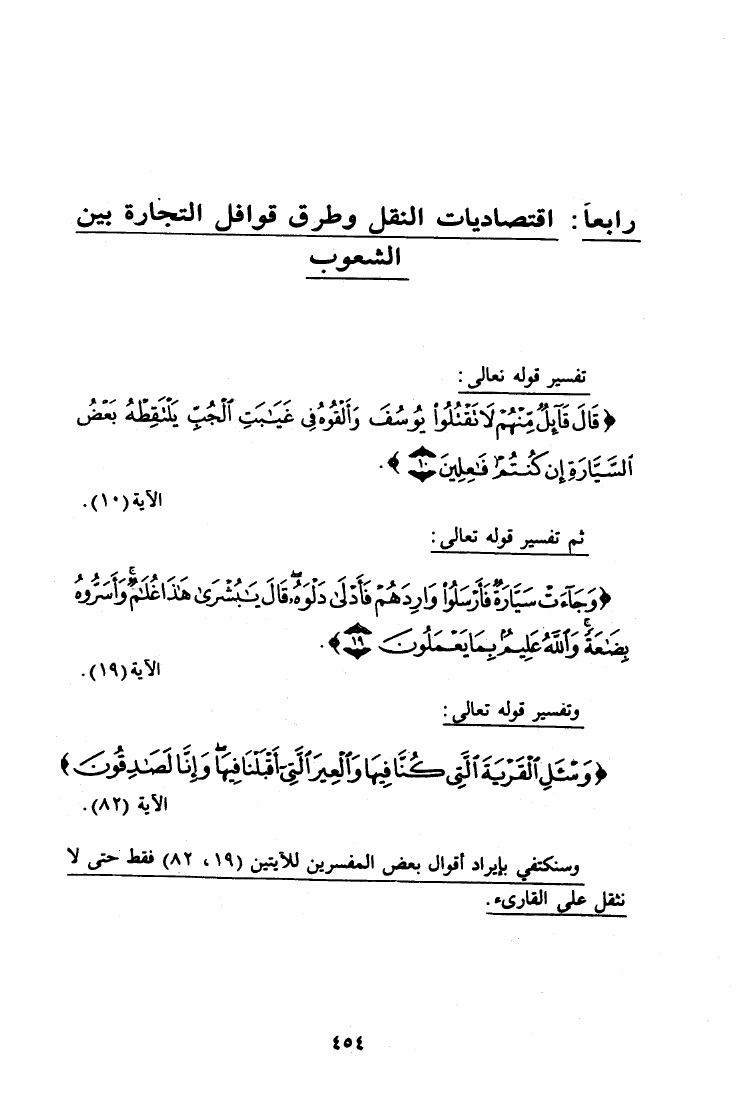 رابعاً: اقتصاديات النقل وطرق قوافل التجارة بين
الشعوب
تفسير قوله تعالى:
﴿قَالَ قَآئِلٌ مِّنْهُمْ لَا تَقْتُلُوا۟ يُوسُفَ وَأَلْقُوهُ فِى غَيَـٰبَتِ ٱلْجُبِّ يَلْتَقِطْهُ بَعْضُ
ٱلسَّيَّارَةِ إِن كُنتُمْ فَـٰعِلِينَ ١٠﴾.
الآية (١٠).
ثم تفسير قوله تعالى:
﴿وَجَآءَتْ سَيَّارَةٌ فَأَرْسَلُوا۟ وَارِدَهُمْ فَأَدْلَىٰ دَلْوَهُۥ ۖ قَالَ يَـٰبُشْرَىٰ هَـٰذَا غُلَـٰمٌ ۚ وَأَسَرُّوهُ
بِضَـٰعَةً ۚ وَٱللَّهُ عَلِيمٌۢ بِمَا يَعْمَلُونَ ١٩﴾.
الآية (١٩).
وتفسير قوله تعالى:
﴿وَسْـَٔلِ ٱلْقَرْيَةَ ٱلَّتِى كُنَّا فِيهَا وَٱلْعِيرَ ٱلَّتِىٓ أَقْبَلْنَا فِيهَا ۖ وَإِنَّا لَصَـٰدِقُونَ﴾
الآية (٨٢).
وسنكتفي بإيراد أقوال بعض المفسرين للآيتين (١٩، ٨٢) فقط حتى لا
نثقل على القارىء.
٤٥٤